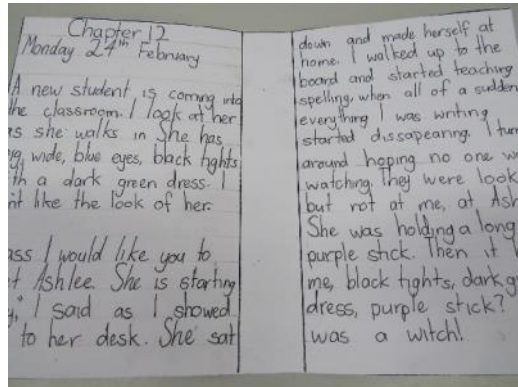 Chapter 12
Monday 24th February
A new student is coming into
the classroom. I look at her
as she walks in She has
big, wide, blue eyes, black tights
with a dark green dress. I
like the look of her.
I would like you to
Ashlee. She is starting
I said as I showed
to her desk. She sat
down and made herself at
home. I walked up to the
board and started teaching
spelling, when all of a sudden
everything I was writing
started dissapearing. I turn
around hoping no one w
watching. They were look
but not at me, at Ash
She was holding a long
purple stick. Then it h
me, black tights, dark g
dress, purple stick?
was a witch!